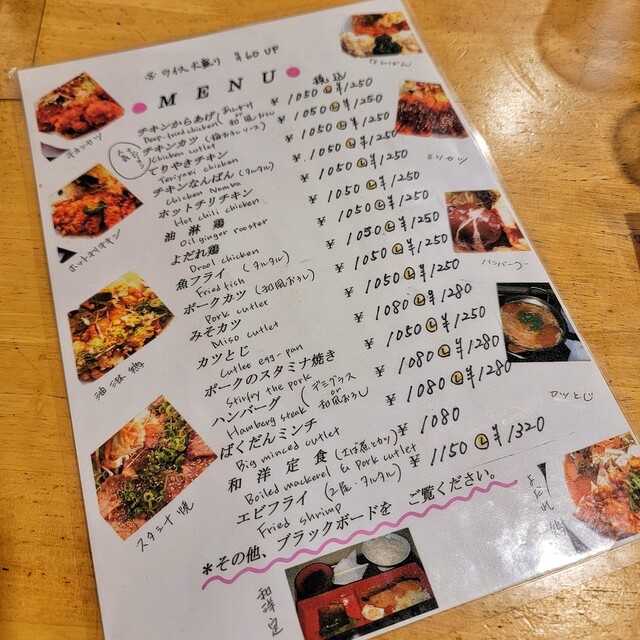 ライス大盛り ¥60 UP
MENU
税込
チキンからあげ ¥1050 Ⓛ¥1250
Deep-fried chicken
チキンカツ ¥1050 Ⓛ¥1250
Chicken cutlet
てりやきチキン ¥1050 Ⓛ¥1250
Teriyaki chicken
チキンなんばん (タルタル) ¥1050 Ⓛ¥1250
Chicken Namba
ホットチリチキン ¥1050 Ⓛ¥1250
Hot chili chicken
油淋鶏 ¥1050 Ⓛ¥1250
Oil ginger rooster
よだれ鶏 ¥1050 Ⓛ¥1250
Drool chicken
魚フライ (タルタル) ¥1050 Ⓛ¥1250
Fried fish
ポークカツ (和風おろし) ¥1050 Ⓛ¥1250
Pork cutlet
みそカツ ¥1050 Ⓛ¥1250
Miso cutlet
カツとじ ¥1080 Ⓛ¥1280
Cutlee egg-pan
ポークのスタミナ焼き ¥1050 Ⓛ¥1250
Stirfry the pork
ハンバーグ (デミグラス or 和風おろし) ¥1080 Ⓛ¥1280
Hamberg steak
ばくだんミンチ ¥1080 Ⓛ¥1280
Big minced cutlet
和洋定食 ¥1080
Boiled mackerel & Pork cutlet
エビフライ (2尾・タルタル) ¥1150 Ⓛ¥1320
Fried shrimp
*その他、ブラックボードを ご覧ください。
チキンカツ
ホットチリチキン
油淋鶏
スタミナ焼
なんばん
ミソカツ
ハンバーグ
カツとじ
よだれ鶏
和洋定